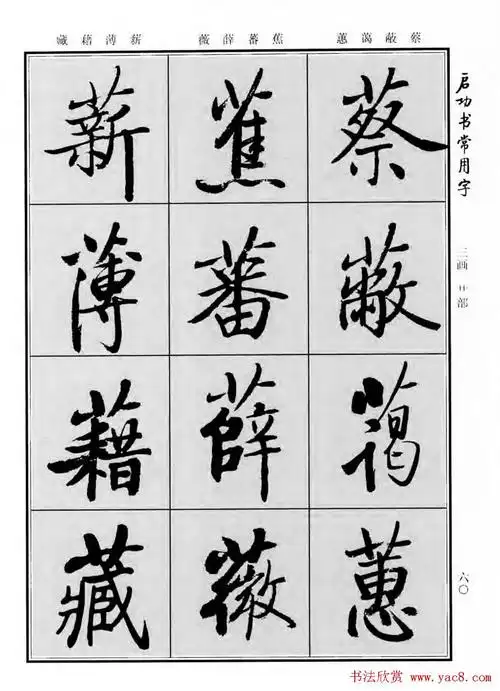 启功书常用字
三画 艹部
六〇
蔡蔽蔼蕙
蕉蕃薛薇
薪薄藉藏
蔡
蔽
蔼
蕙
蕉
蕃
薛
薇
薪
薄
藉
藏
书法欣赏 www.yac8.com